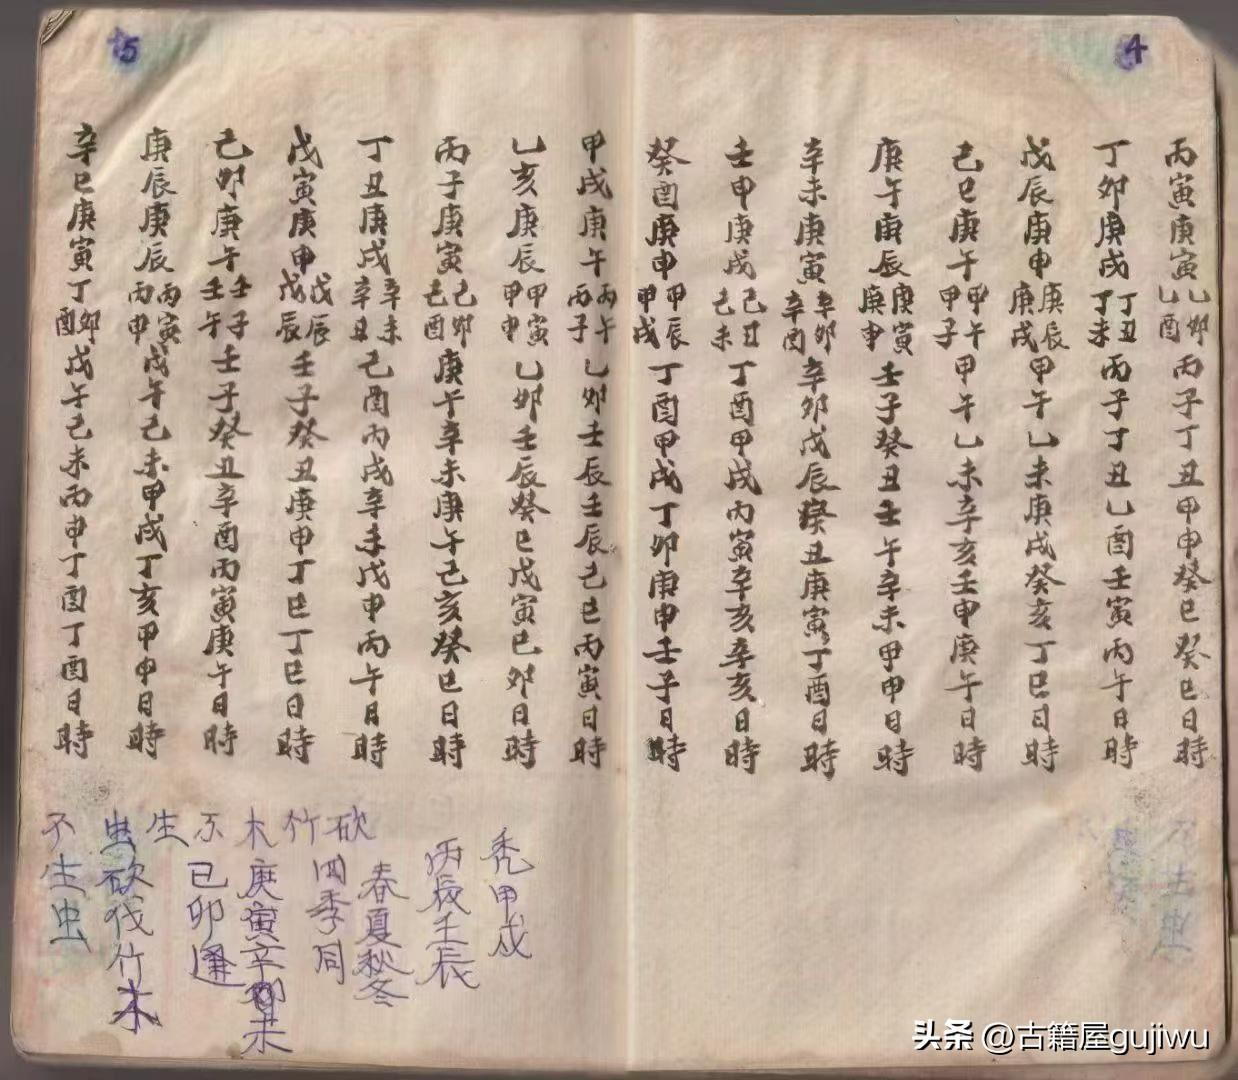 4
丙寅庚寅乙卯乙酉丙子丁丑甲申癸巳癸巳日時
丁卯庚戌丁丑丁未丙子丁丑乙酉壬寅丙午日時
戊辰庚申庚辰庚戌甲午乙未庚戌癸亥丁巳日時
己巳庚午甲午甲子甲午乙未辛亥壬申庚午日時
庚午庚辰庚寅庚申壬子癸丑壬午辛未甲申日時
辛未庚寅辛卯辛酉辛卯戊辰癸丑庚寅丁酉日時
壬申庚戌己丑己未丁酉甲戌丙寅辛亥辛亥日時
癸酉庚申甲辰甲戌丁酉甲戌丁卯庚申壬子日時
5
甲戌庚午丙午丙子乙卯壬辰壬辰己巳丙寅日時
乙亥庚辰甲寅甲申乙卯壬辰癸巳戊寅巳卯日時
丙子庚寅己卯己酉庚午辛未庚午己亥癸巳日時
丁丑庚戌辛未辛丑己酉丙戌辛未戊申丙午日時
戊寅庚申戊辰戊辰壬子癸丑庚申丁巳丁巳日時
己卯庚午壬子壬午壬子癸丑辛酉丙寅庚午日時
庚辰庚辰丙寅丙申戊午己未甲戌丁亥甲申日時
辛巳庚寅丁卯丁酉戊午己未丙申丁酉丁酉日時
砍竹木不生虫
禿甲戌
丙辰壬辰
春夏秋冬
四季同
庚寅辛卯未
已卯逢
砍伐竹木
不生虫
头条 @古籍屋gujiwu